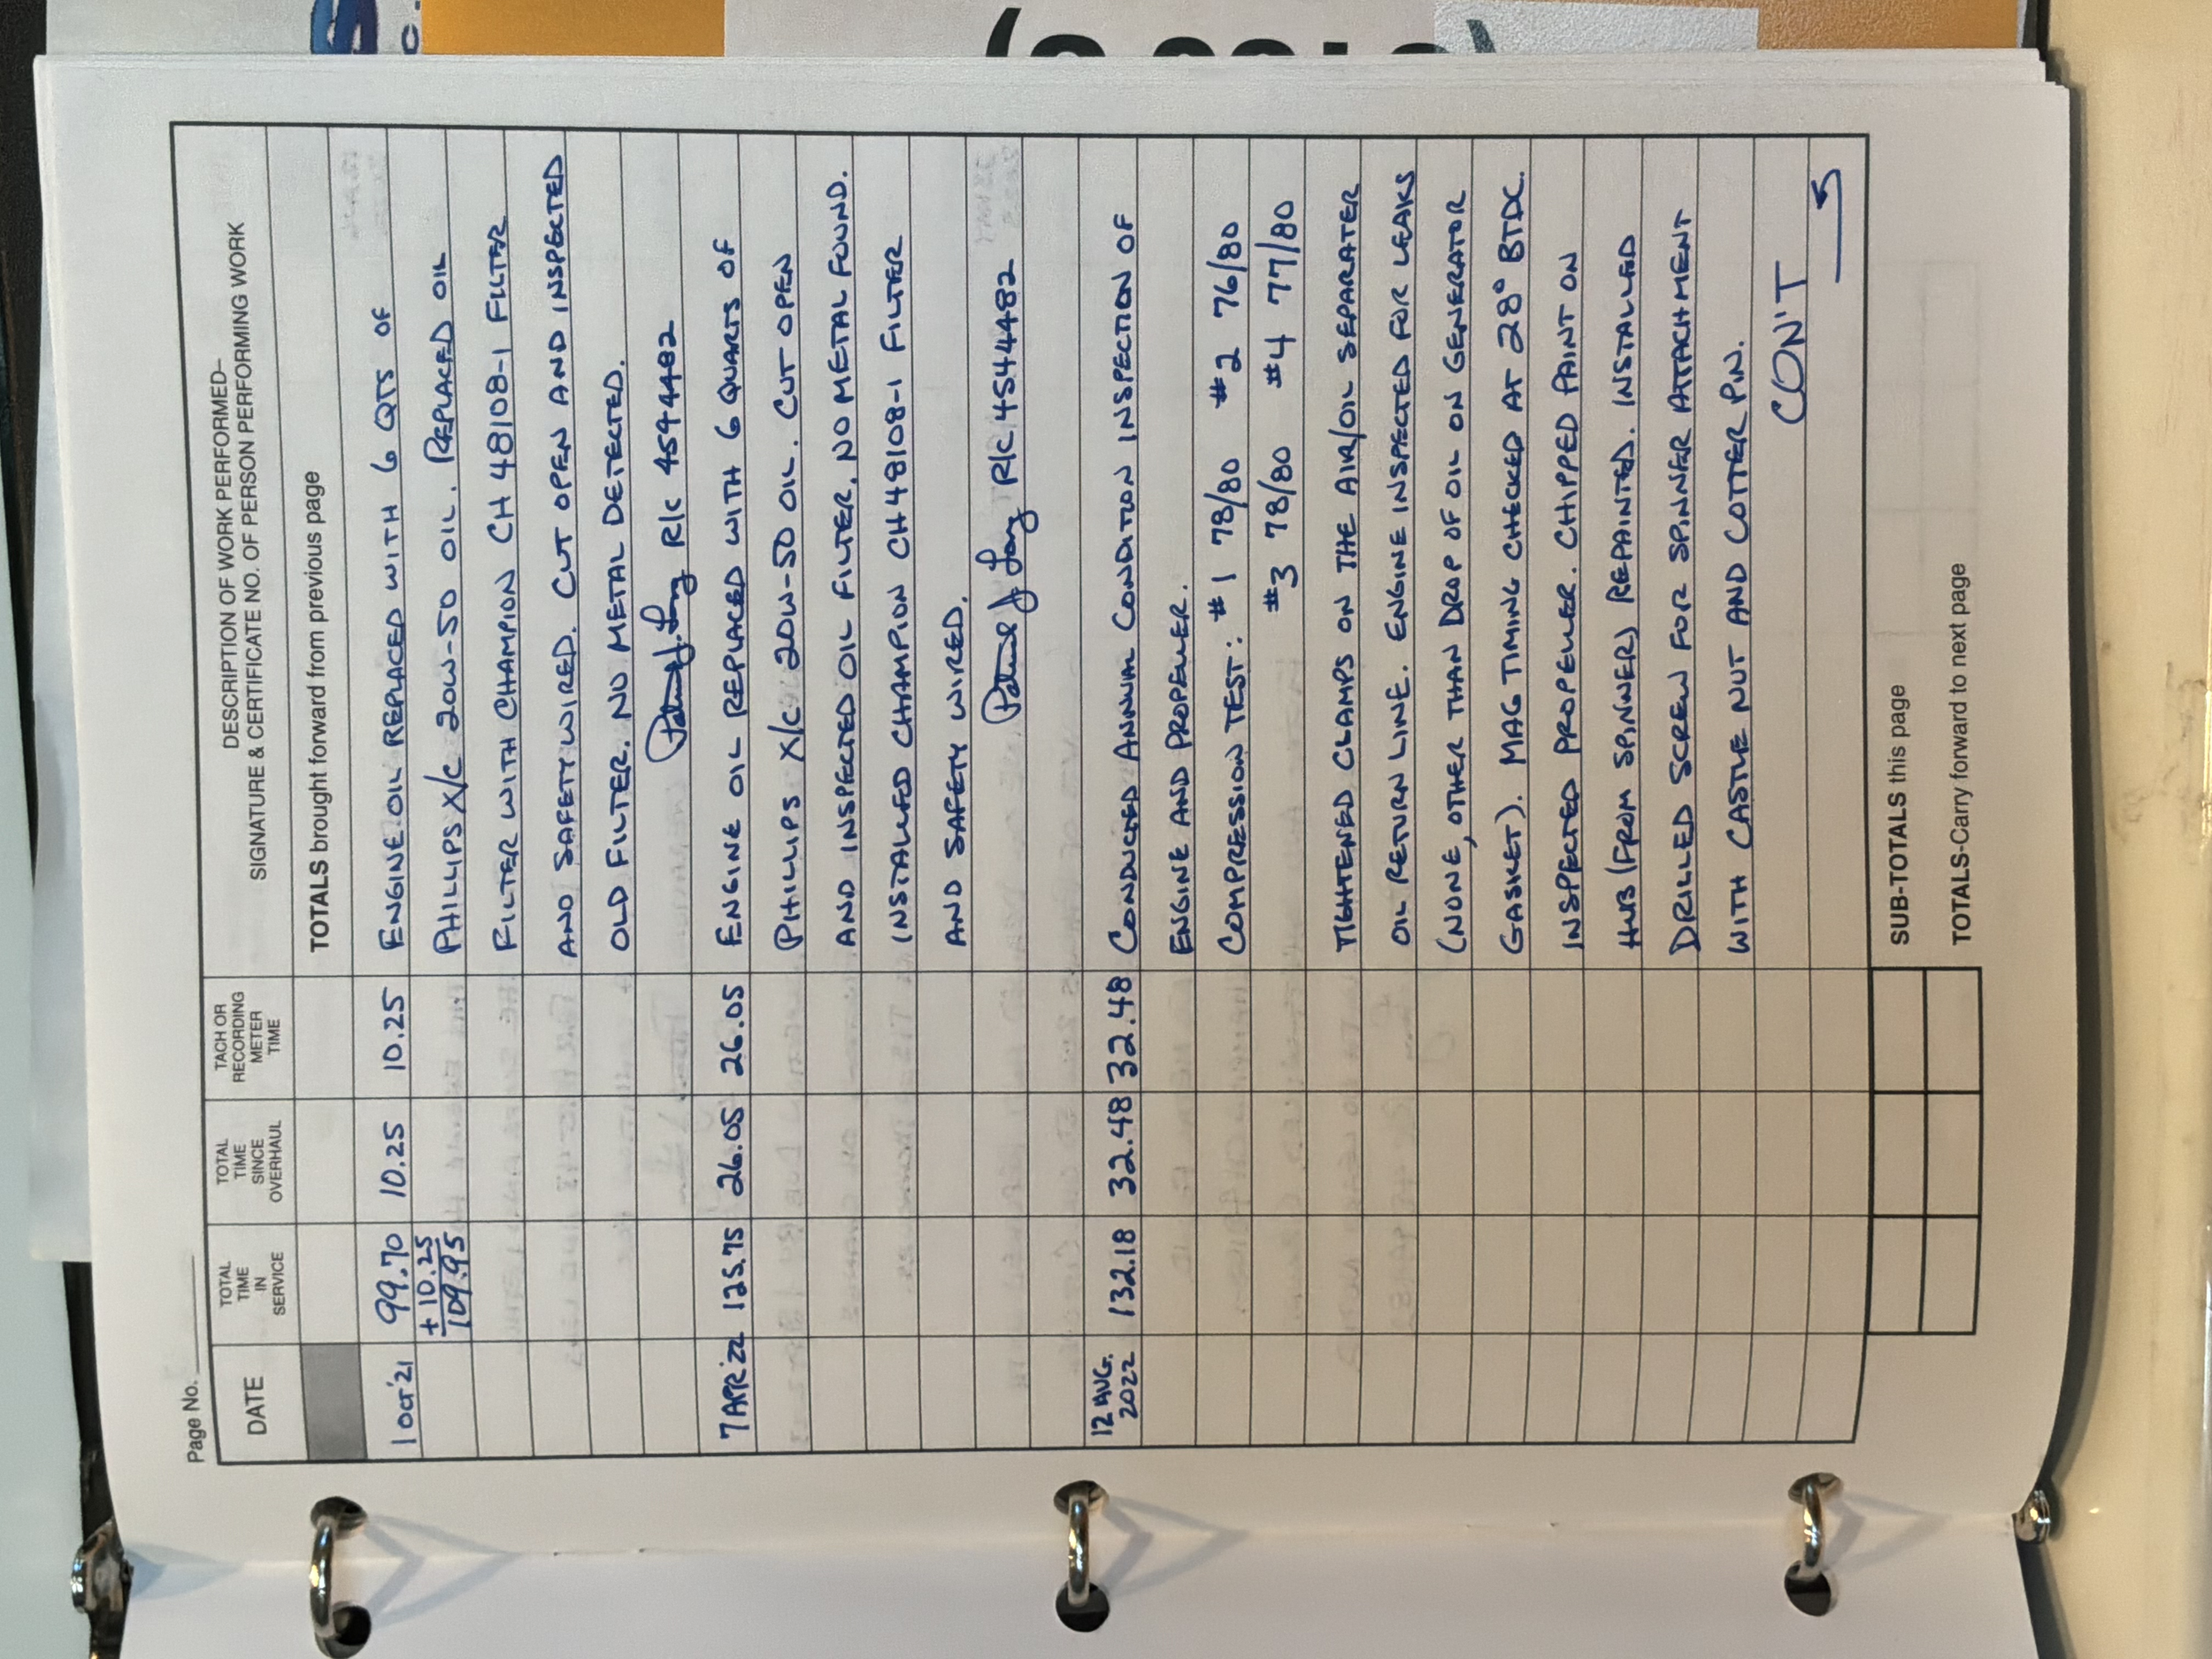 Page No.
DATE
TOTAL TIME IN SERVICE
TOTAL TIME SINCE OVERHAUL
TACH OR RECORDING METER TIME
DESCRIPTION OF WORK PERFORMED–
SIGNATURE & CERTIFICATE NO. OF PERSON PERFORMING WORK
TOTALS brought forward from previous page
1 OCT '21 99.70 10.25 10.25 ENGINE OIL REPLACED WITH 6 QTS OF
+ 10.25 PHILLIPS X/C 20W-50 OIL. REPLACED OIL
109.95 FILTER WITH CHAMPION CH 48108-1 FILTER
AND SAFETY WIRED. CUT OPEN AND INSPECTED
OLD FILTER. NO METAL DETECTED.
R/C 4544482
7 APR '22 125.75 26.05 26.05 ENGINE OIL REPLACED WITH 6 QUARTS OF
PHILLIPS X/C 20W-50 OIL. CUT OPEN
AND INSPECTED OIL FILTER. NO METAL FOUND.
INSTALLED CHAMPION CH48108-1 FILTER
AND SAFETY WIRED.
R/C 4544482
12 AUG. 2022 132.18 32.48 32.48 CONDUCTED ANNUAL CONDITION INSPECTION OF
ENGINE AND PROPELLER.
COMPRESSION TEST: #1 78/80 #2 76/80
#3 78/80 #4 77/80
TIGHTENED CLAMPS ON THE AIR/OIL SEPARATER
OIL RETURN LINE. ENGINE INSPECTED FOR LEAKS
(NONE, OTHER THAN DROP OF OIL ON GENERATOR
GASKET). MAG TIMING CHECKED AT 28° BTDC.
INSPECTED PROPELLER. CHIPPED PAINT ON
HUB (FROM SPINNER) REPAINTED. INSTALLED
DRILLED SCREW FOR SPINNER ATTACHMENT
WITH CASTLE NUT AND COTTER PIN.
CON'T
SUB-TOTALS this page
TOTALS-Carry forward to next page